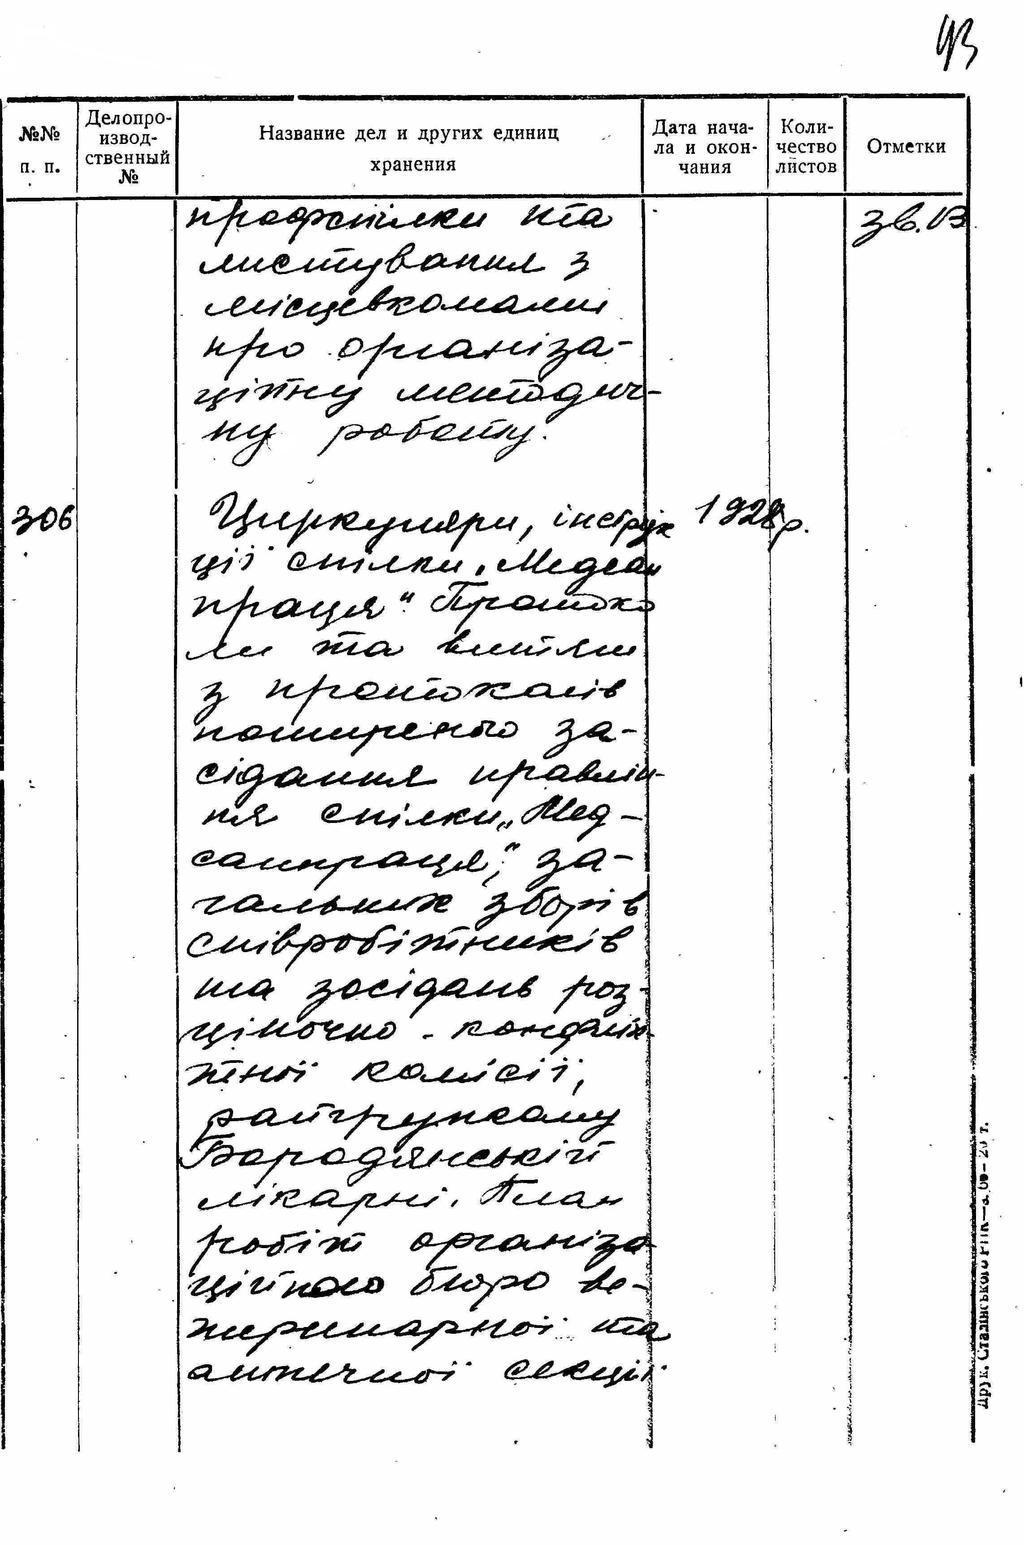 43
№№ п. п.
Делопро-
извод-
ственный
№
Название дел и других единиц
хранения
Дата нача-
ла и окон-
чания
Коли-
чество
листов
Отметки
профспілки та
листування з
місцевкомами
про організа-
ційну методич-
ну роботу.
306
Циркуляри, інструк
ції спілки „Медсан
праця“. Протоко
ли та витяги
з протоколів
поширеного за-
сідання правлін-
ня спілки „Мед-
санпраця“, за-
гальних зборів
співробітників
та засідань роз-
ціночно-конфлік-
тної комісії,
райгрупкому
Бородянській
лікарні. План
робіт організа
ційного бюро ве-
теринарної та
аптечної секції
1928р.
Друк. Сталінського